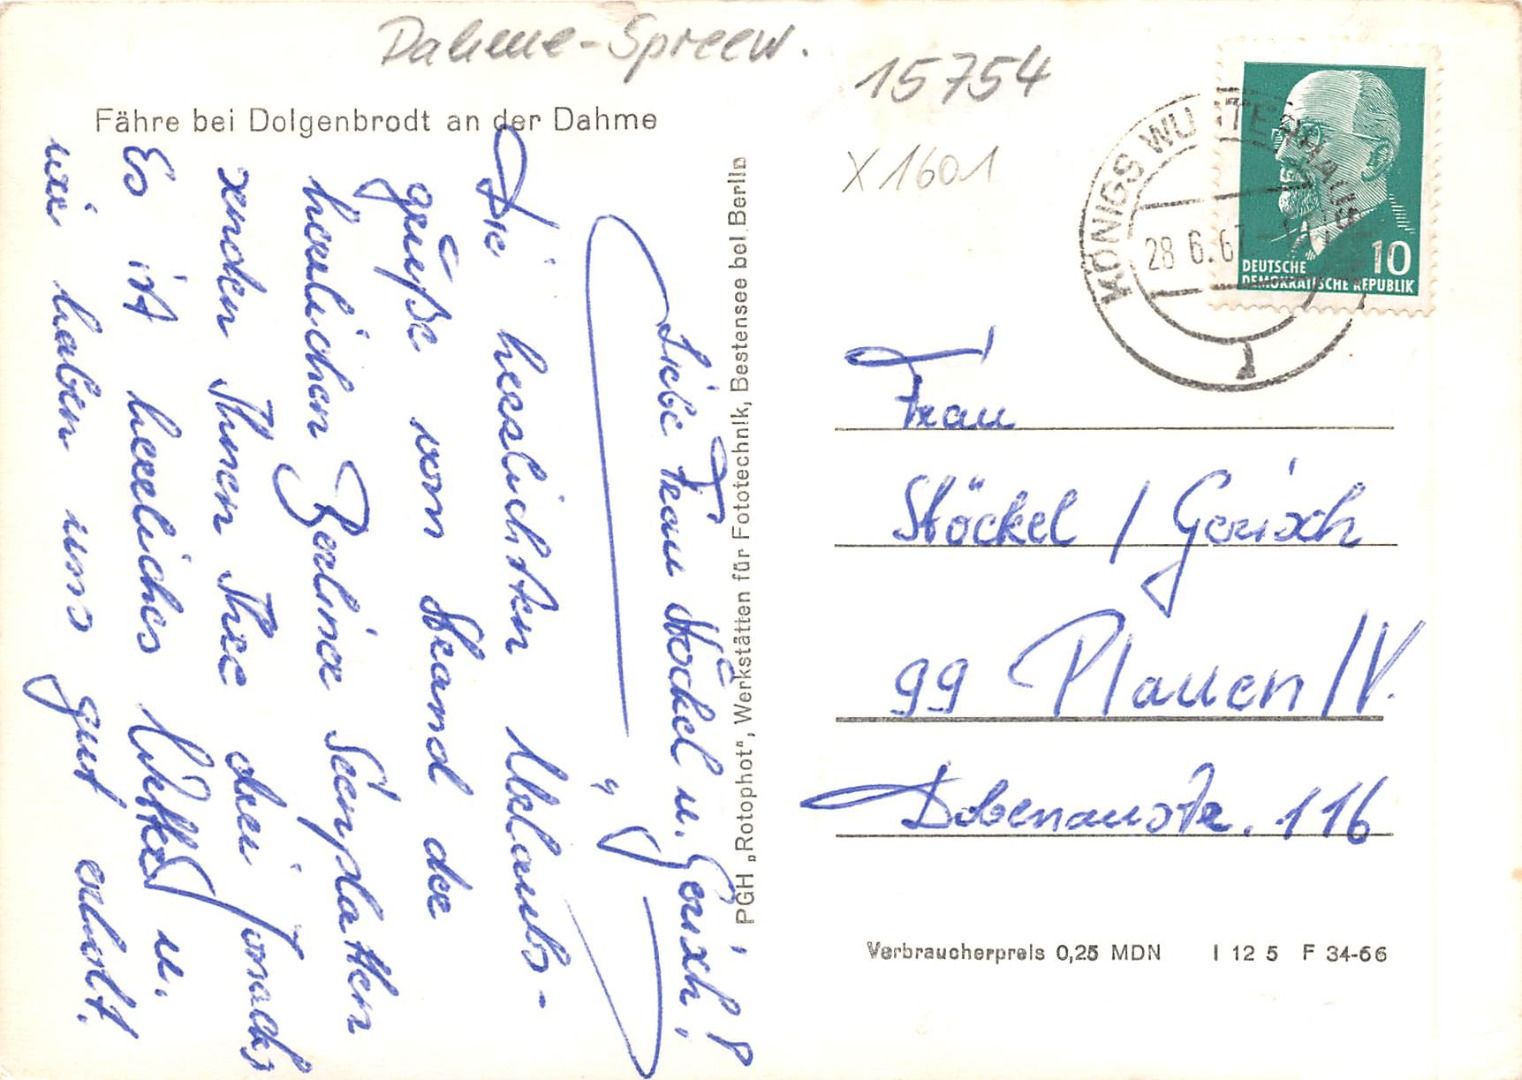 Dahme-Spreew.
15754
X1601
Fähre bei Dolgenbrodt an der Dahme
KÖNIGS WUSTERHAUSEN
28.6.67
10
DEUTSCHE
DEMOKRATISCHE REPUBLIK
Liebe Frau Stöckel u. Gerisch!
Die herzlichsten Urlaubs-
grüße vom Strand der
herrlichen Berliner Seenplatten
senden Ihnen Ihre drei
Es ist herrliches Wetter u.
wir haben uns gut erholt.
PGH „Rotophot", Werkstätten für Fototechnik, Bestensee bei Berlin
Frau
Stöckel / Gerisch
99 Plauen/V.
Dobenaustr. 116
Verbraucherpreis 0,25 MDN I 12 5 F 34-66